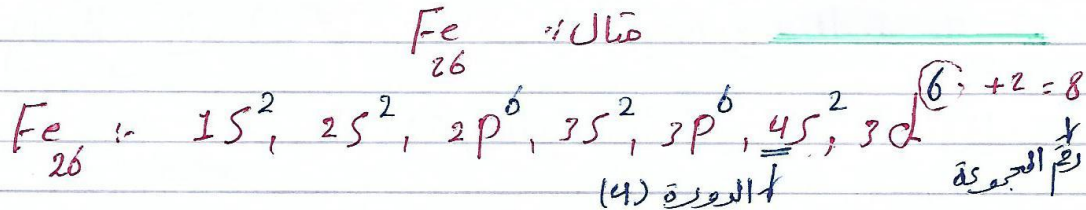 مثال :- Fe 26
Fe 26 :- 1S², 2S², 2P⁶, 3S², 3P⁶, 4S², 3d⁶ +2 = 8
الدورة (4) رقم المجموعة